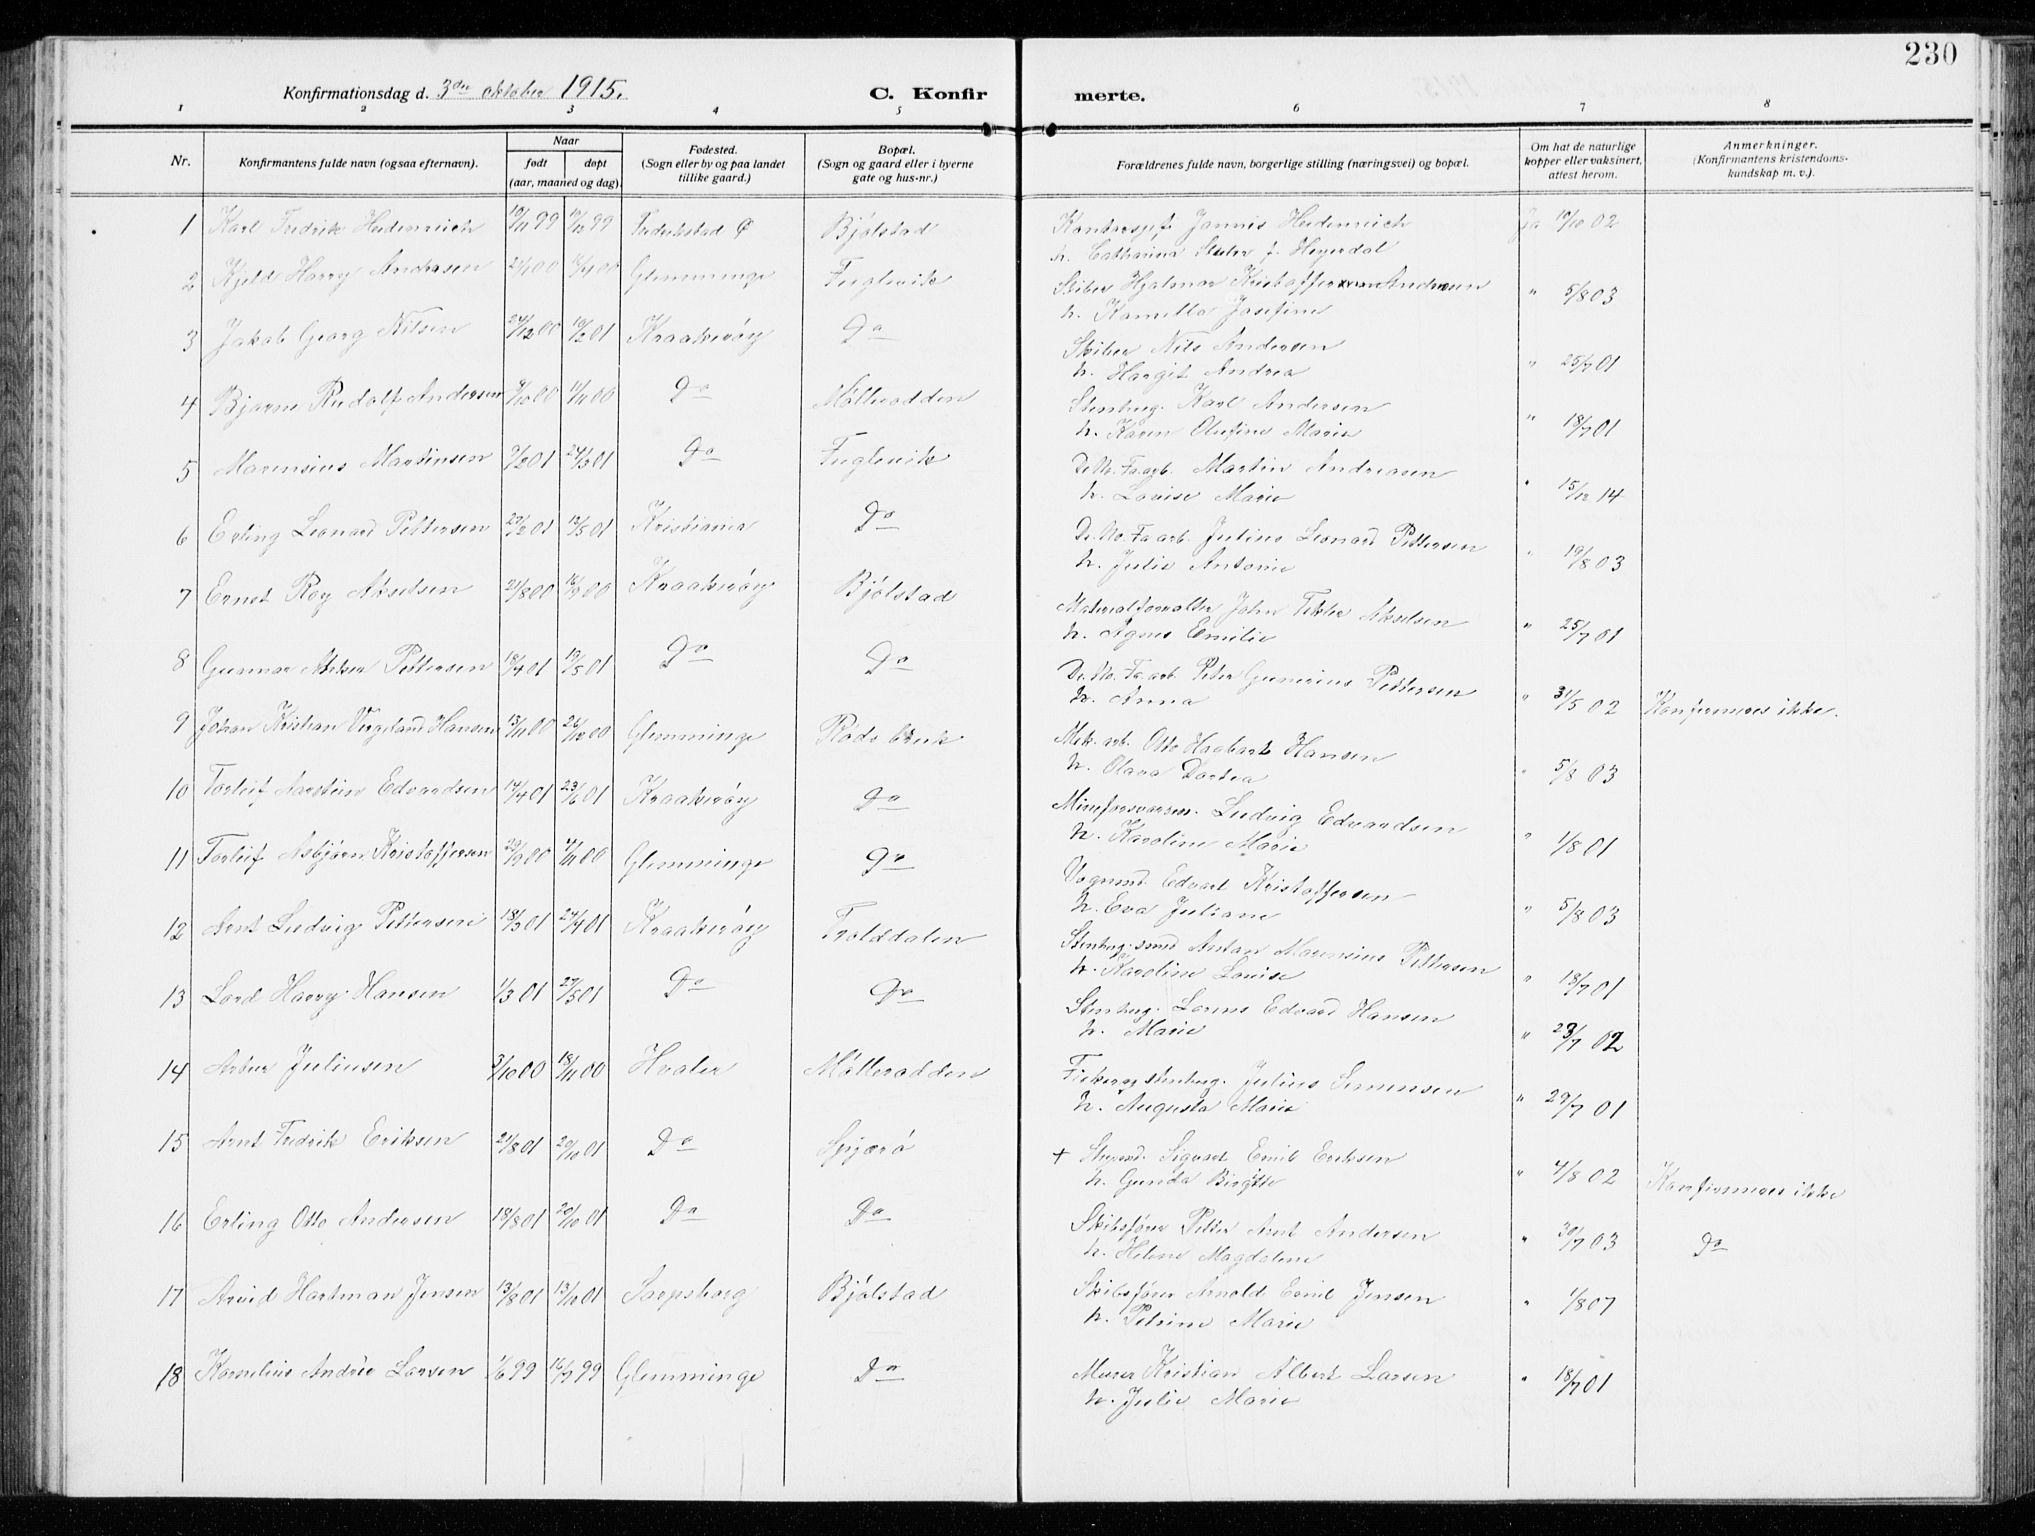 230
Konfirmationsdag d. 3die oktober 1915.
C. Konfirmerte.
1 2 3 4 5 6 7 8
Nr. Konfirmantens fulde navn (ogsaa efternavn). Naar født døpt (aar, maaned og dag). Fødested. (Sogn eller by og paa landet tillike gaard.) Bopæl. (Sogn og gaard eller i byerne gate og hus-nr.) Forældrenes fulde navn, borgerlige stilling (næringsvei) og bopæl. Om hat de naturlige kopper eller vaksinert, attest herom. Anmerkninger. (Konfirmantens kristendoms-kundskap m. v.).
1 Karl Fredrik Heidenreich 10/11 99 10/12 99 Fredrikstad Bjølstad Kontorsjef Jannis Heidenreich ja 10/10 02
h. Catharina f. Heyerdal
2 Kjeld Harry Andersen 21/1 00 Glemminge Fuglevik Skiber Hjalmar Kristoffer Andersen " 5/8 03
h. Kamilla Josefine
3 Jakob Georg Nilsen 24/12 00 10/2 01 Kraakerøy Do Skiber Nils Andersen " 25/7 01
h. Margit Andrea
4 Bjarne Rudolf Andersen 9/10 00 11/11 00 Do Mølleodden Stenhug. Karl Andersen " 18/7 01
h. Karen Olufine Marie
5 Marensius Martinsen 9/2 01 24/3 01 Do Fuglevik De No. Fa arb. Martin Andreasen " 15/12 14
h. Louise Marie
6 Erling Leonard Pettersen 27/2 01 12/5 01 Kristiania Do De. No. Fa arb. Julius Leonard Pettersen " 19/8 03
h. Julie Antonie
7 Ernst Roy Akselsen 21/8 00 16/9 00 Kraakerøy Bjølstad Materialforvalter John Akselsen " 25/7 01
h. Agnes Emilie
8 Gunnar Pettersen 10/4 01 19/5 01 Do Do De. No. Fa arb. Peter Gunerius Pettersen " 31/5 02 Konfirmeres ikke.
h. Anna
9 Johan Kristian Vergeland Hansen 13/11 00 26/12 00 Glemminge Røds bruk Mek. arb. Otto Hagbart Hansen " 5/8 03
h. Olava Dortea
10 Torleif Aarstein Edvardsen 14/4 01 23/6 01 Kraakerøy Do Mineforsvarsm. Ludvig Edvardsen " 1/8 01
h. Karoline Marie
11 Torleif Asbjørn Kristoffersen 29/9 00 4/11 00 Glemminge Do Vognmd. Edvart Kristoffersen " 5/8 03
h. Eva Juliane
12 Arnt Ludvig Pettersen 18/3 01 24/4 01 Kraakerøy Trolddalen Stenhug. smed Anton Marensius Pettersen " 18/7 01
h. Karoline Louise
13 Lord Harry Hansen 1/3 01 27/5 01 Do Do Stenhug. Lorens Edvard Hansen " 23/7 02
h. Marie
14 Artur Juliusen 3/10 00 18/11 00 Hvaler Mølleodden Fisker og stenhug. Julius Simensen " 29/7 01
h. Augusta Marie
15 Arnt Fredrik Eriksen 21/8 01 20/10 01 Do Spjærø + Sigvart Emil Eriksen " 4/8 02 Konfirmeres ikke
h. Gunda Birgitte
16 Erling Otto Andersen 18/8 01 20/10 01 Do Do Skibsfører Petter Arnt Andersen " 30/7 03 Do
h. Helene Magdalene
17 Arvid Hartman Jensen 13/8 01 13/10 01 Sarpsborg Bjølstad Skibsfører Arnold Emil Jensen " 1/8 07
h. Petrine Marie
18 Kornelius Andrée Larsen 1/6 99 16/7 99 Glemminge Do Murer Kristian Albert Larsen " 18/7 01
h. Julie Marie